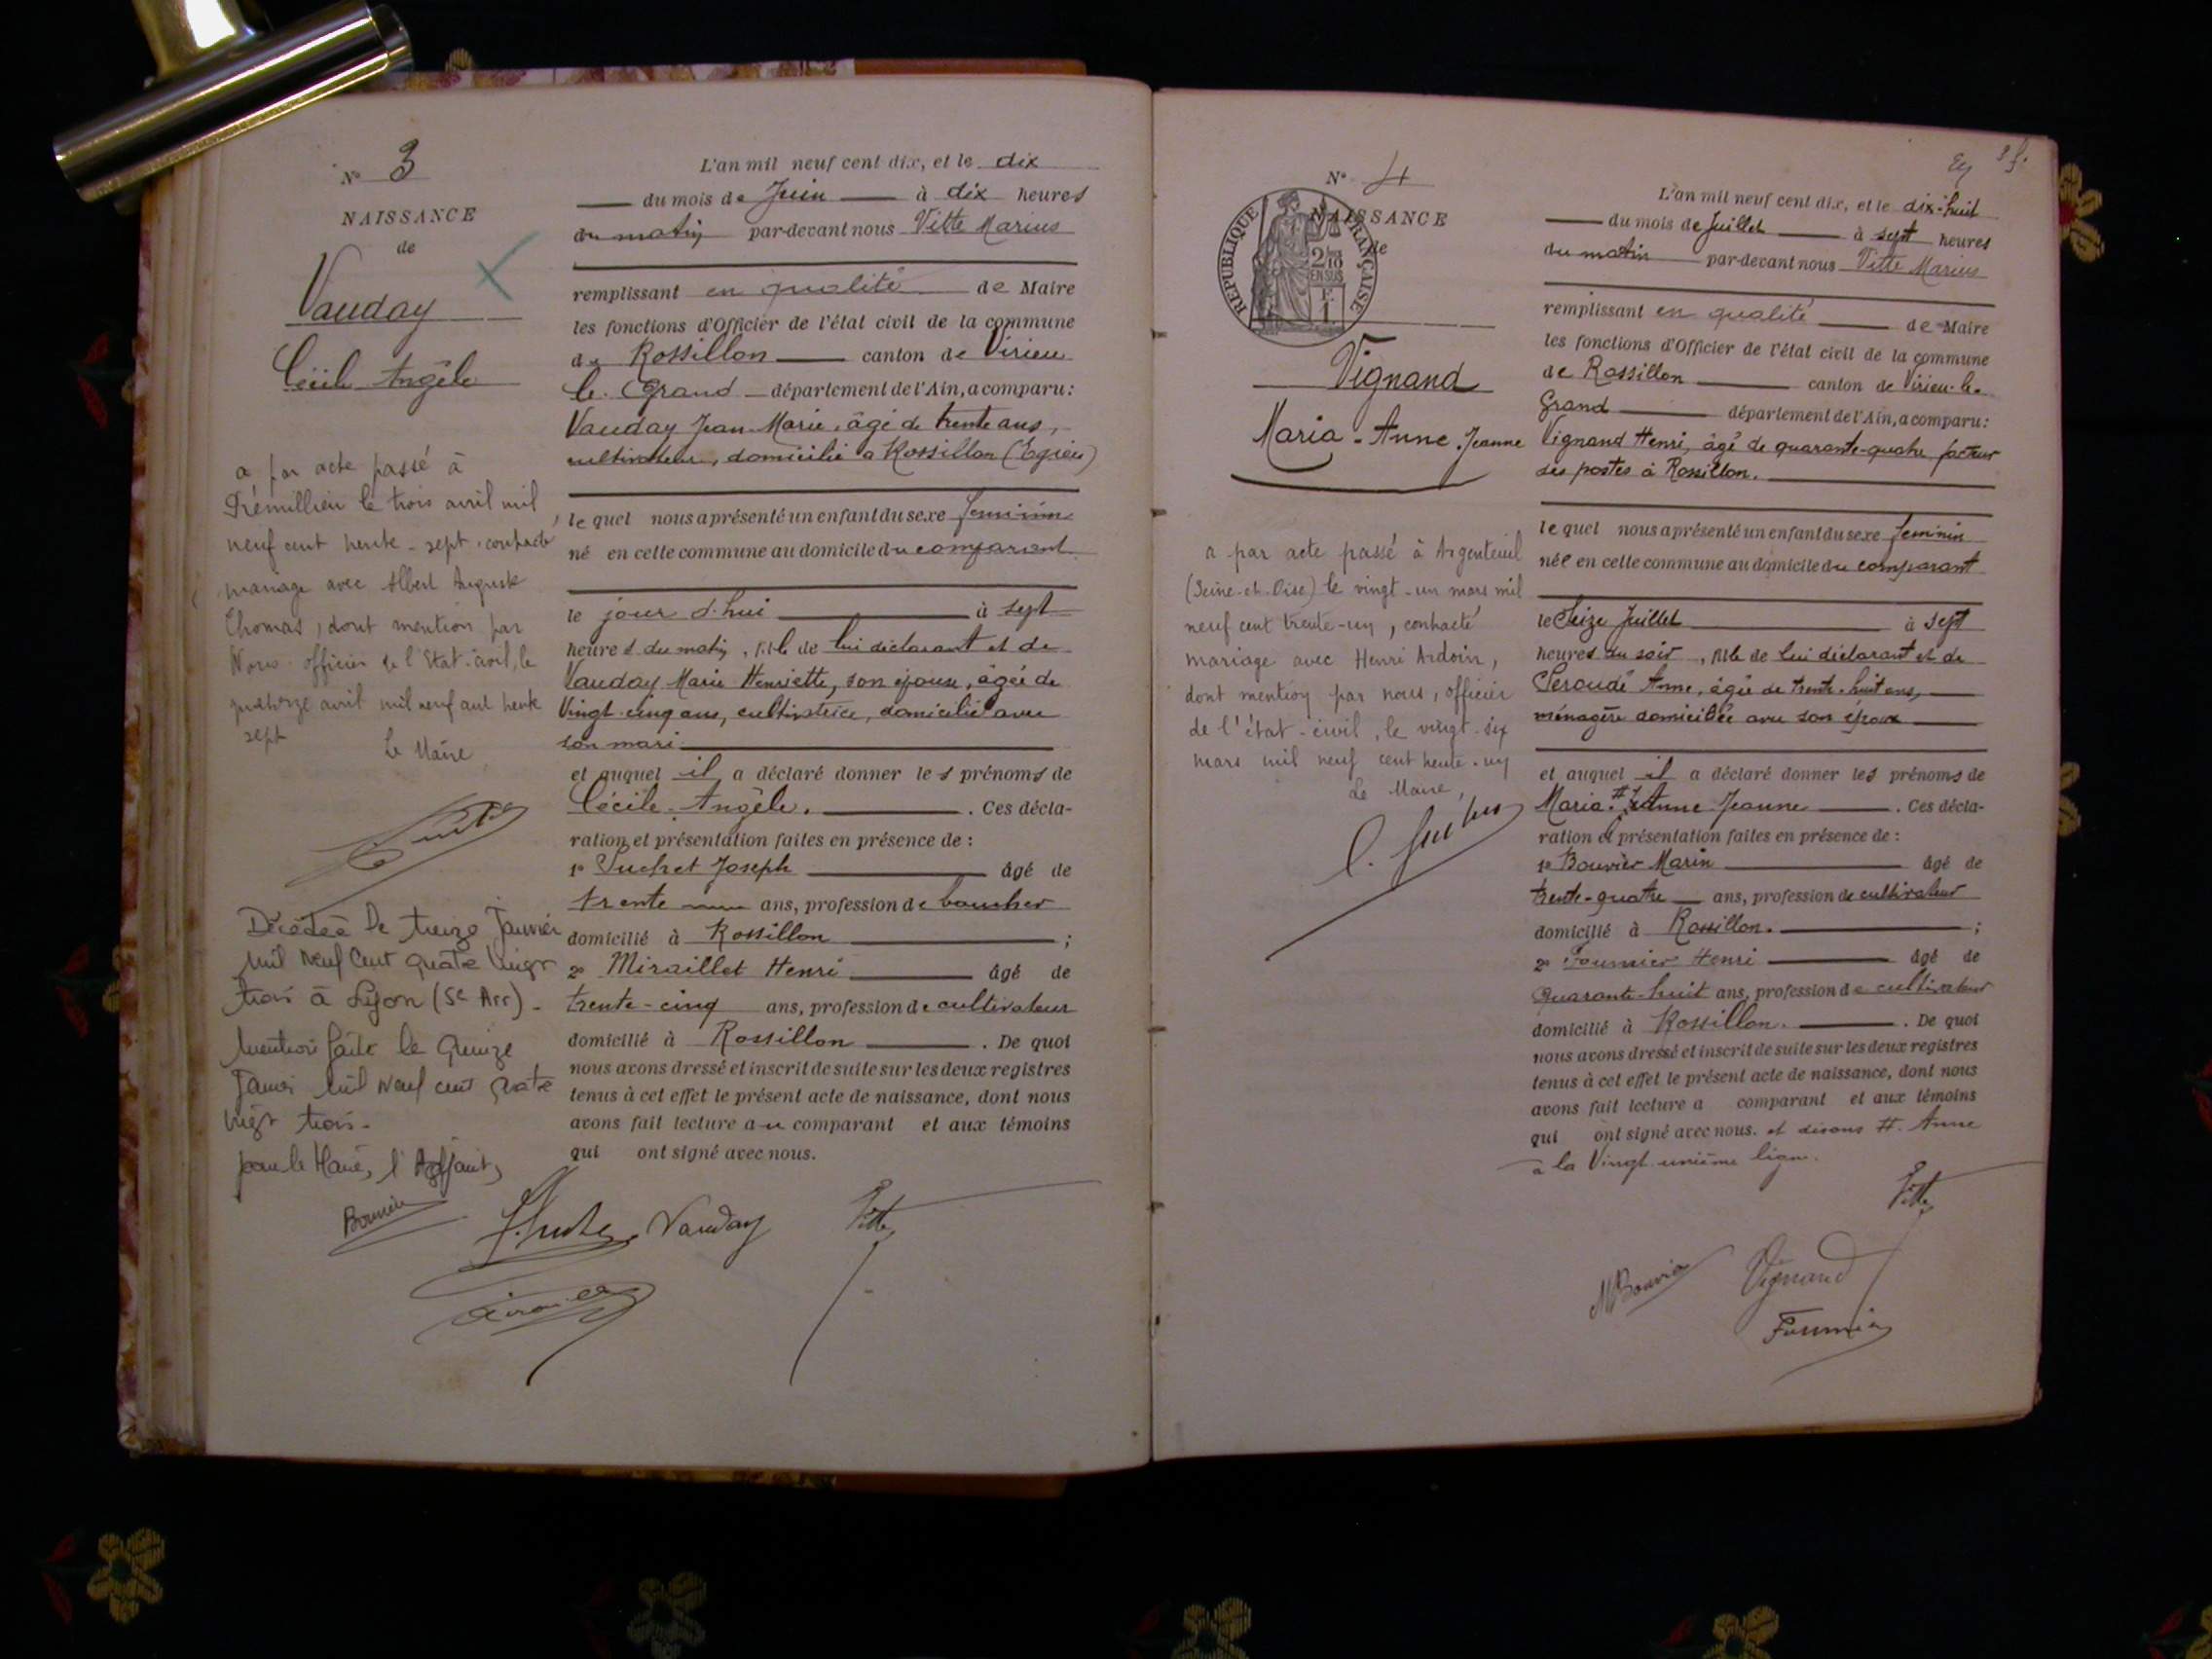 N° 3
NAISSANCE
de
Vauday
Cécile Angèle
a par acte passé à
Prémillieu le trois avril mil
neuf cent trente-sept, contracté
mariage avec Albert Auguste
Thomas, dont mention par
Nous officier de l'Etat-civil, le
avril mil neuf cent trente
sept
Le Maire
Décédée le treize Janvier
mil neuf cent quatre vingt
trois à Lyon (5e Arr) -
Mention faite le Quinze
Janvier mil neuf cent quatre
vingt trois -
pour le Maire, l'Adjoint,
Bouvier
L'an mil neuf cent dix, et le dix
du mois de Juin à dix heures
du matin par-devant nous Vitte Marius
remplissant en qualité de Maire
les fonctions d'Officier de l'état civil de la commune
de Rossillon canton de Virieu
le Grand département de l'Ain, a comparu:
Vauday Jean-Marie, âgé de trente ans,
cultivateur, domicilié à Rossillon (Egieu)
le quel nous a présenté un enfant du sexe féminin
né en cette commune au domicile du comparant
le jour d'hui à sept
heures du matin, fille de lui déclarant et de
Vauday Marie Henriette, son épouse, âgée de
vingt-cinq ans, cultivatrice, domiciliée avec
son mari
et auquel il a déclaré donner les prénoms de
Cécile-Angèle. Ces décla-
ration et présentation faites en présence de :
1° Suchet Joseph âgé de
trente ans, profession de boucher
domicilié à Rossillon ;
2° Miraillet Henri âgé de
trente-cinq ans, profession de cultivateur
domicilié à Rossillon . De quoi
nous avons dressé et inscrit de suite sur les deux registres
tenus à cet effet le présent acte de naissance, dont nous
avons fait lecture au comparant et aux témoins
qui ont signé avec nous.
Vauday Vitte
N° 4
NAISSANCE
de
REPUBLIQUE FRANÇAISE
2/10
EN SUS
F.
1
Vignand
Maria-Anne Jeanne
a par acte passé à Argenteuil
(Seine-et-Oise) le vingt-un mars mil
neuf cent trente-un, contracté
mariage avec Henri Ardoin,
dont mention par nous, officier
de l'état-civil, le vingt-six
mars mil neuf cent trente-un
Le Maire,
L'an mil neuf cent dix, et le dix-huit
du mois de Juillet à sept heures
du matin par-devant nous Vitte Marius
remplissant en qualité de Maire
les fonctions d'Officier de l'état civil de la commune
de Rossillon canton de Virieu-le-
Grand département de l'Ain, a comparu:
Vignand Henri, âgé de quarante-quatre facteur
des postes à Rossillon.
le quel nous a présenté un enfant du sexe féminin
née en cette commune au domicile du comparant
le Seize Juillet à sept
heures du soir, fille de lui déclarant et de
Peroudé Anne, âgée de trente-huit ans,
ménagère domiciliée avec son époux
et auquel il a déclaré donner les prénoms de
Maria # Anne Jeanne . Ces décla-
ration et présentation faites en présence de :
1° Bouvier Marin âgé de
trente-quatre ans, profession de cultivateur
domicilié à Rossillon. ;
2° Fournier Henri âgé de
quarante-huit ans, profession de cultivateur
domicilié à Rossillon. . De quoi
nous avons dressé et inscrit de suite sur les deux registres
tenus à cet effet le présent acte de naissance, dont nous
avons fait lecture a comparant et aux témoins
qui ont signé avec nous. et disons #. Anne
à la Vingt-unième ligne.
Vitte
M Bouvier Vignand
Fournier